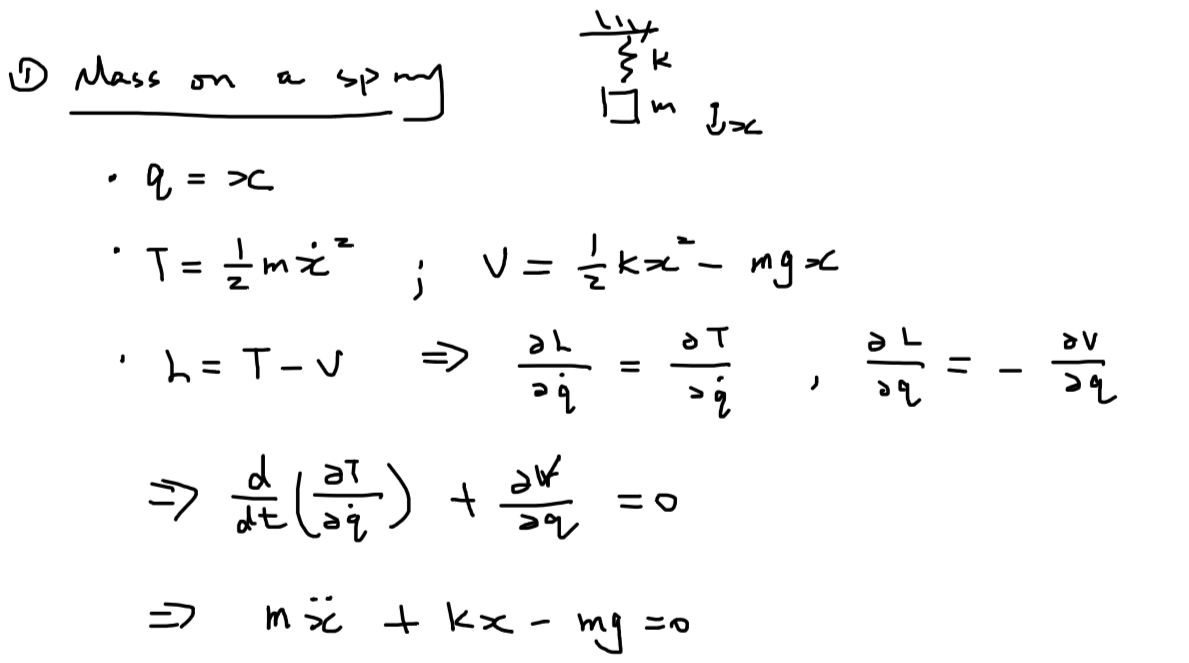 ① Mass on a spring
k
m ↓x
· q = x
· T = ½mẋ² ; V = ½kx² − mgx
· L = T − V ⇒ ∂L/∂q̇ = ∂T/∂q̇ , ∂L/∂q = − ∂V/∂q
⇒ d/dt(∂T/∂q̇) + ∂V/∂q = 0
⇒ mẍ + kx − mg = 0